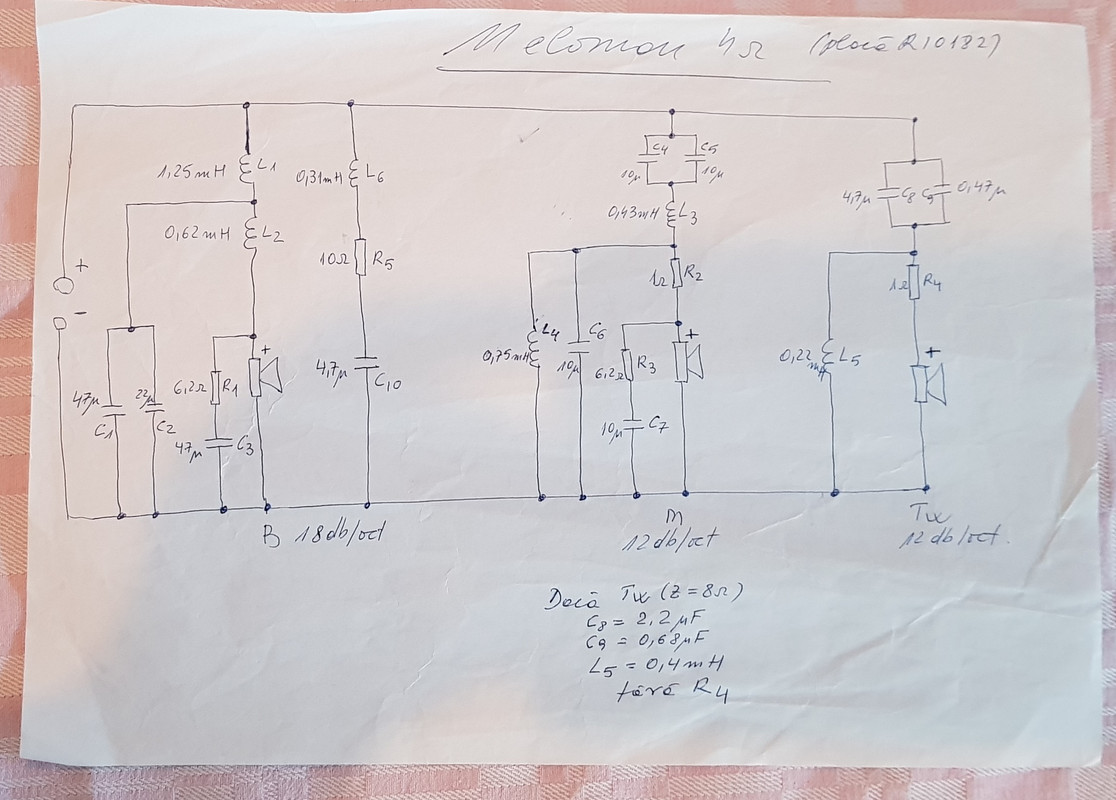 Meloman 4Ω (placă R10182)
1,25mH L1
0,62mH L2
0,31mH L6
10Ω R5
4,7µ C10
+
-
47µ C1
22µ C2
6,2Ω R1
47µ C3
+
B 18db/oct
C4 C5
10µ 10µ
0,43mH L3
1Ω R2
L4
0,75mH
C6
10µ
6,2Ω R3
10µ C7
+
M
12db/oct
4,7µ C8 C9 0,47µ
1Ω R4
0,22 mH L5
+
Tw
12db/oct.
Dacă Tw (Z=8Ω)
C8 = 2,2µF
C9 = 0,68µF
L5 = 0,4mH
fără R4